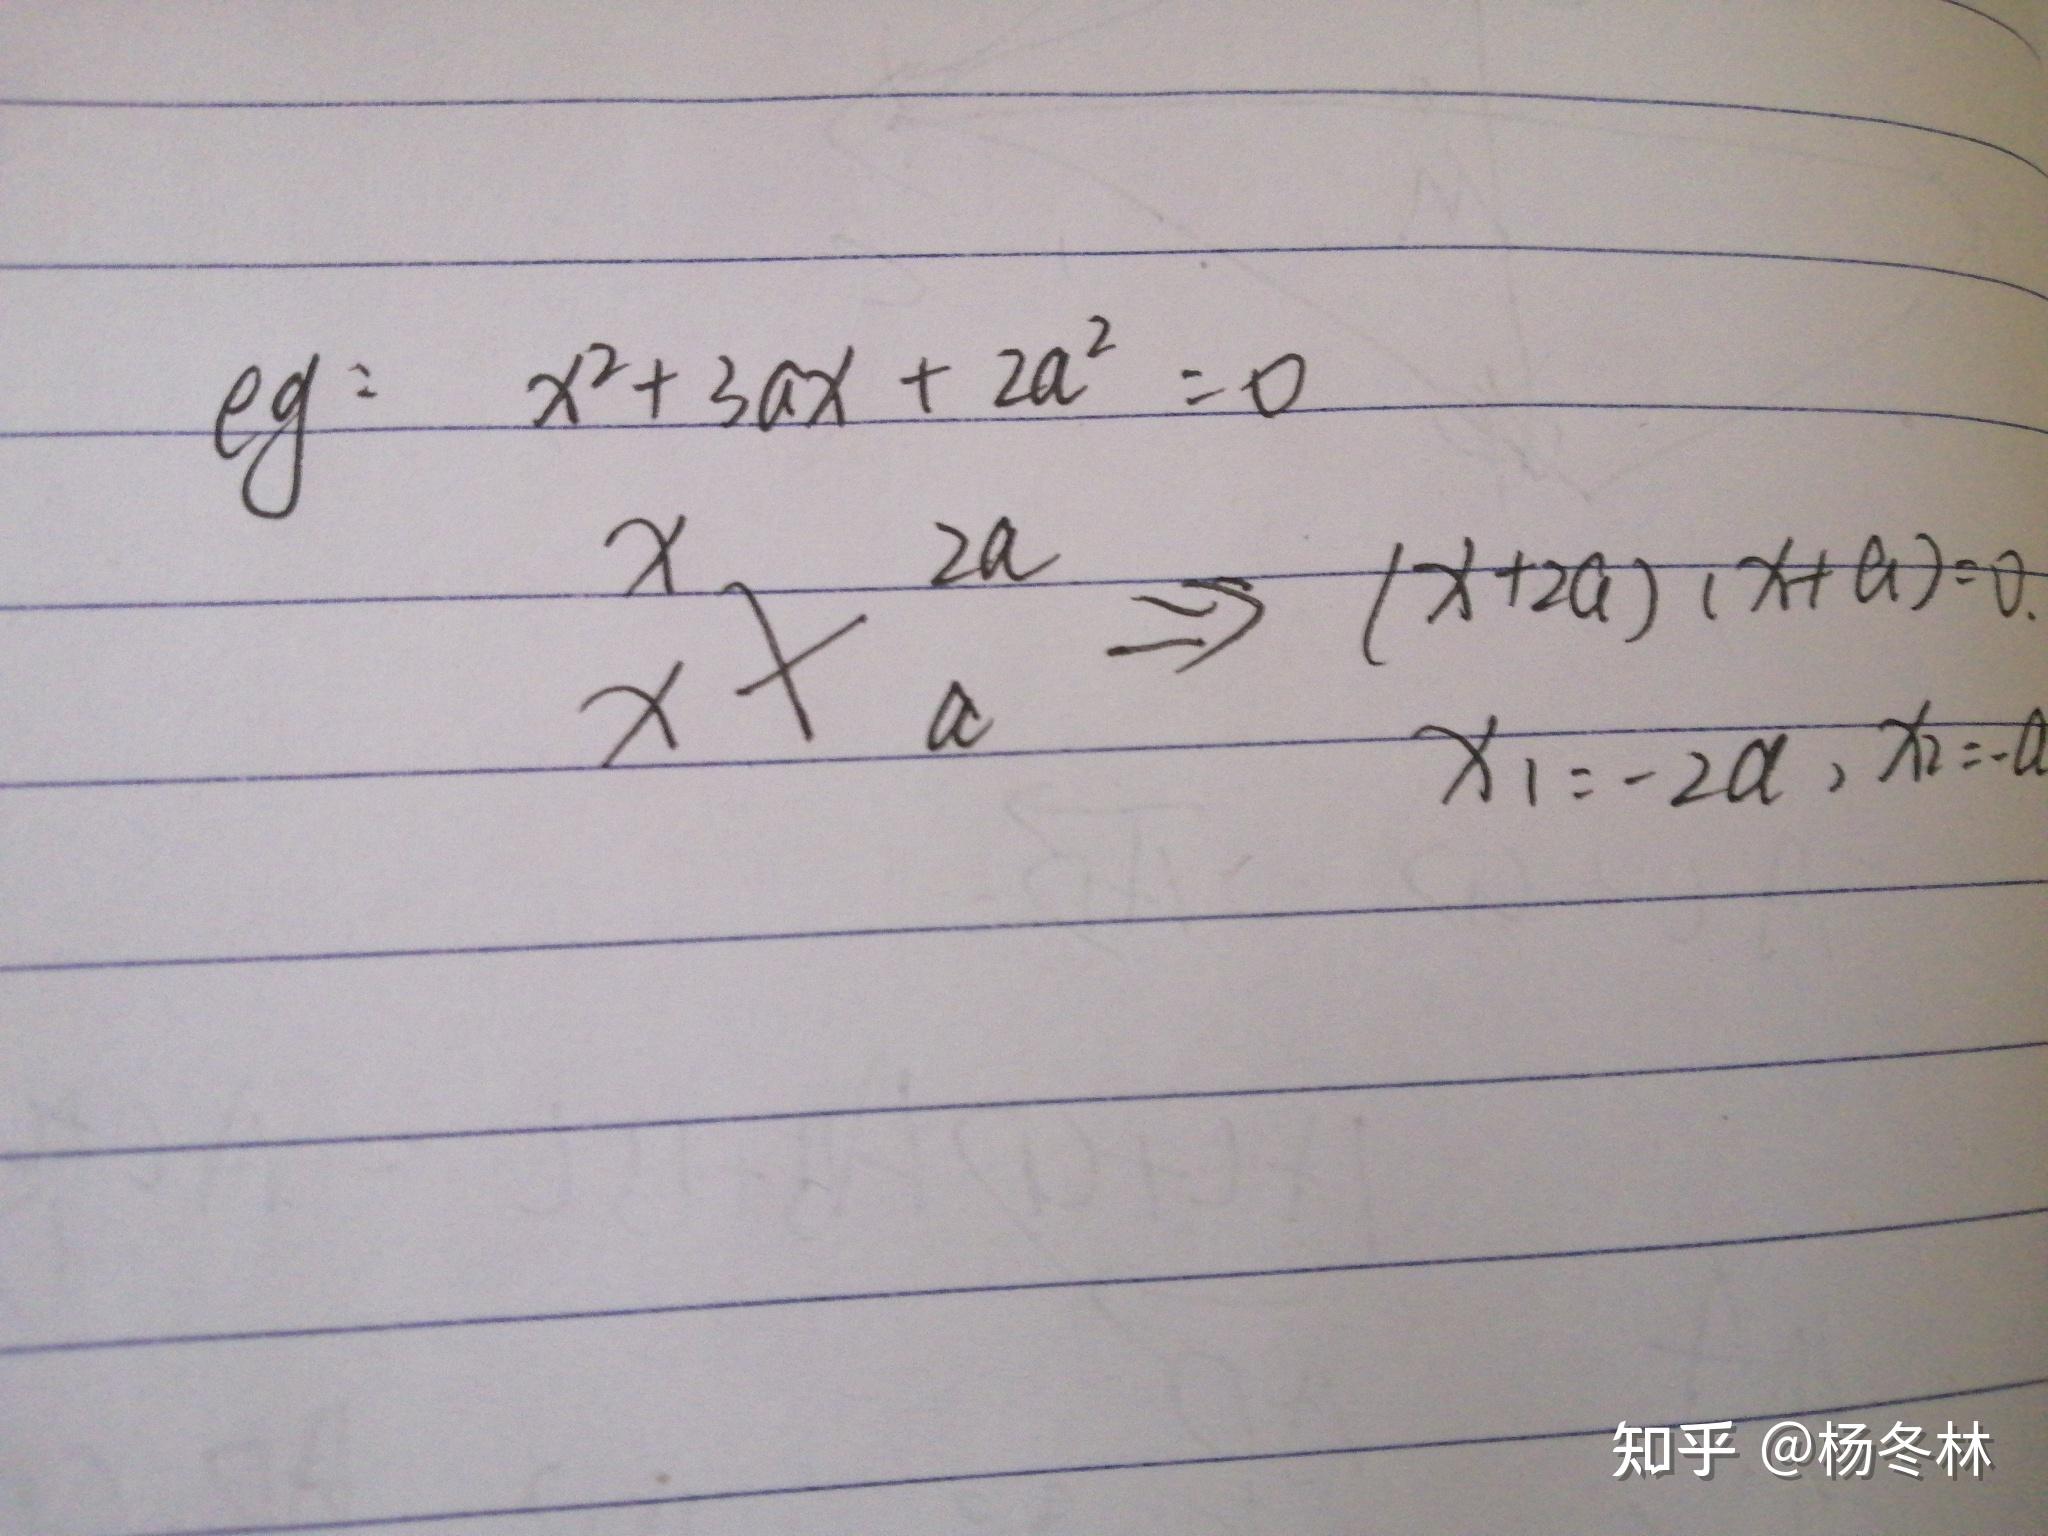 eg: x²+3ax+2a²=0
x 2a
x a
⇒ (x+2a)(x+a)=0.
x₁=-2a, x₂=-a
知乎 @杨冬林